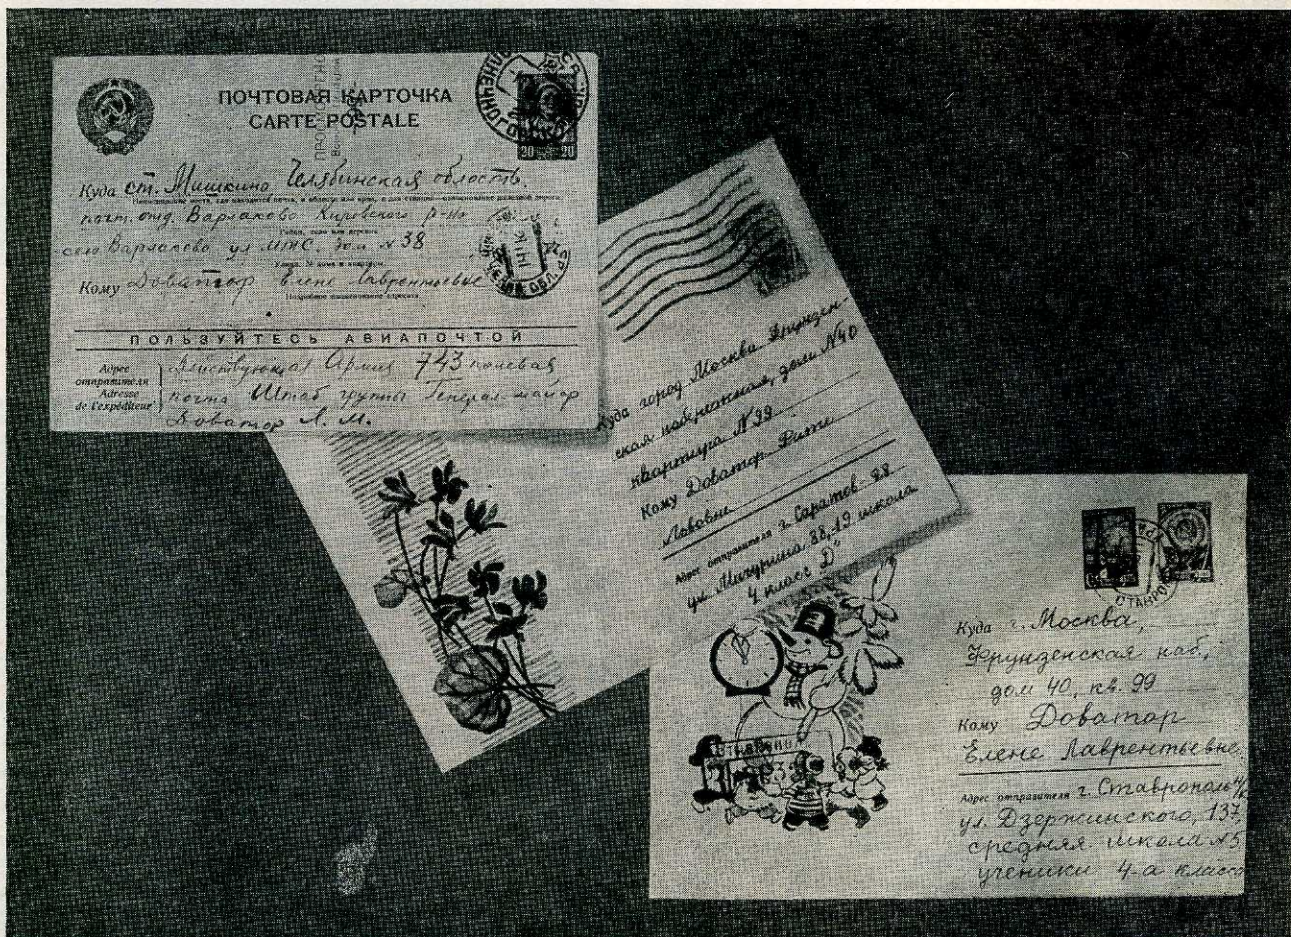 ПОЧТОВАЯ КАРТОЧКА
CARTE POSTALE
20 20
Куда ст. Мишкино Челябинская область.
почт. отд. Варлаково Кировского р-на
село Варлаково ул МТС. дом № 38
Кому Доватор Елене Лаврентьевне
Подробное наименование адресата
ПОЛЬЗУЙТЕСЬ АВИАПОЧТОЙ
Адрес отправителя
Adresse de l'expéditeur
Действующая Армия 743 полевая
почта Штаб группы Генерал-майор
Доватор Л. М.
Куда город Москва Фрунзен-
ская набережная, дом №40
квартира №99
Кому Доватор Рите
Львовне
Адрес отправителя г. Саратов-28
ул. Мичурина 88, 19 школа
4 класс „Д"
Куда г. Москва,
Фрунзенская наб,
дом 40, кв. 99
Кому Доватор
Елене Лаврентьевне
Адрес отправителя г. Ставрополь
ул. Дзержинского, 137,
средняя школа №5
ученики 4-а класса